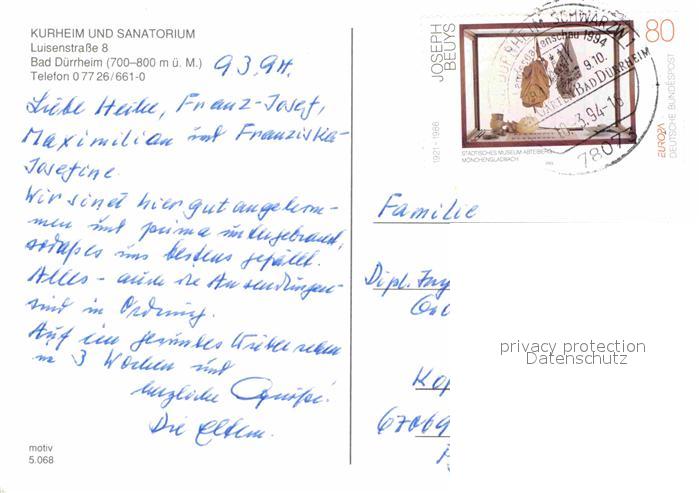 KURHEIM UND SANATORIUM
Luisenstraße 8
Bad Dürrheim (700–800 m ü. M.)
Telefon 0 77 26/661-0
9.3.94.
Liebe Heike, Franz-Josef,
Maximilian und Franziska-
Josefine.
Wir sind hier gut angekom-
men und prima untergebracht,
sodaß es uns bestens gefällt.
Alles - auch die Anwendungen -
sind in Ordnung.
Auf ein gesundes Wiedersehen
in 3 Wochen und
herzliche Grüße.
Die Eltern.
motiv
5.068
JOSEPH
BEUYS
1921-1986
80
STÄDTISCHES MUSEUM ABTEIBERG
MÖNCHENGLADBACH
EUROPA
DEUTSCHE BUNDESPOST
Landesgartenschau 1994
9.10.
BAD DÜRRHEIM
3.94-16
7807
Familie
Dipl. Ing
privacy protection
Datenschutz
6706